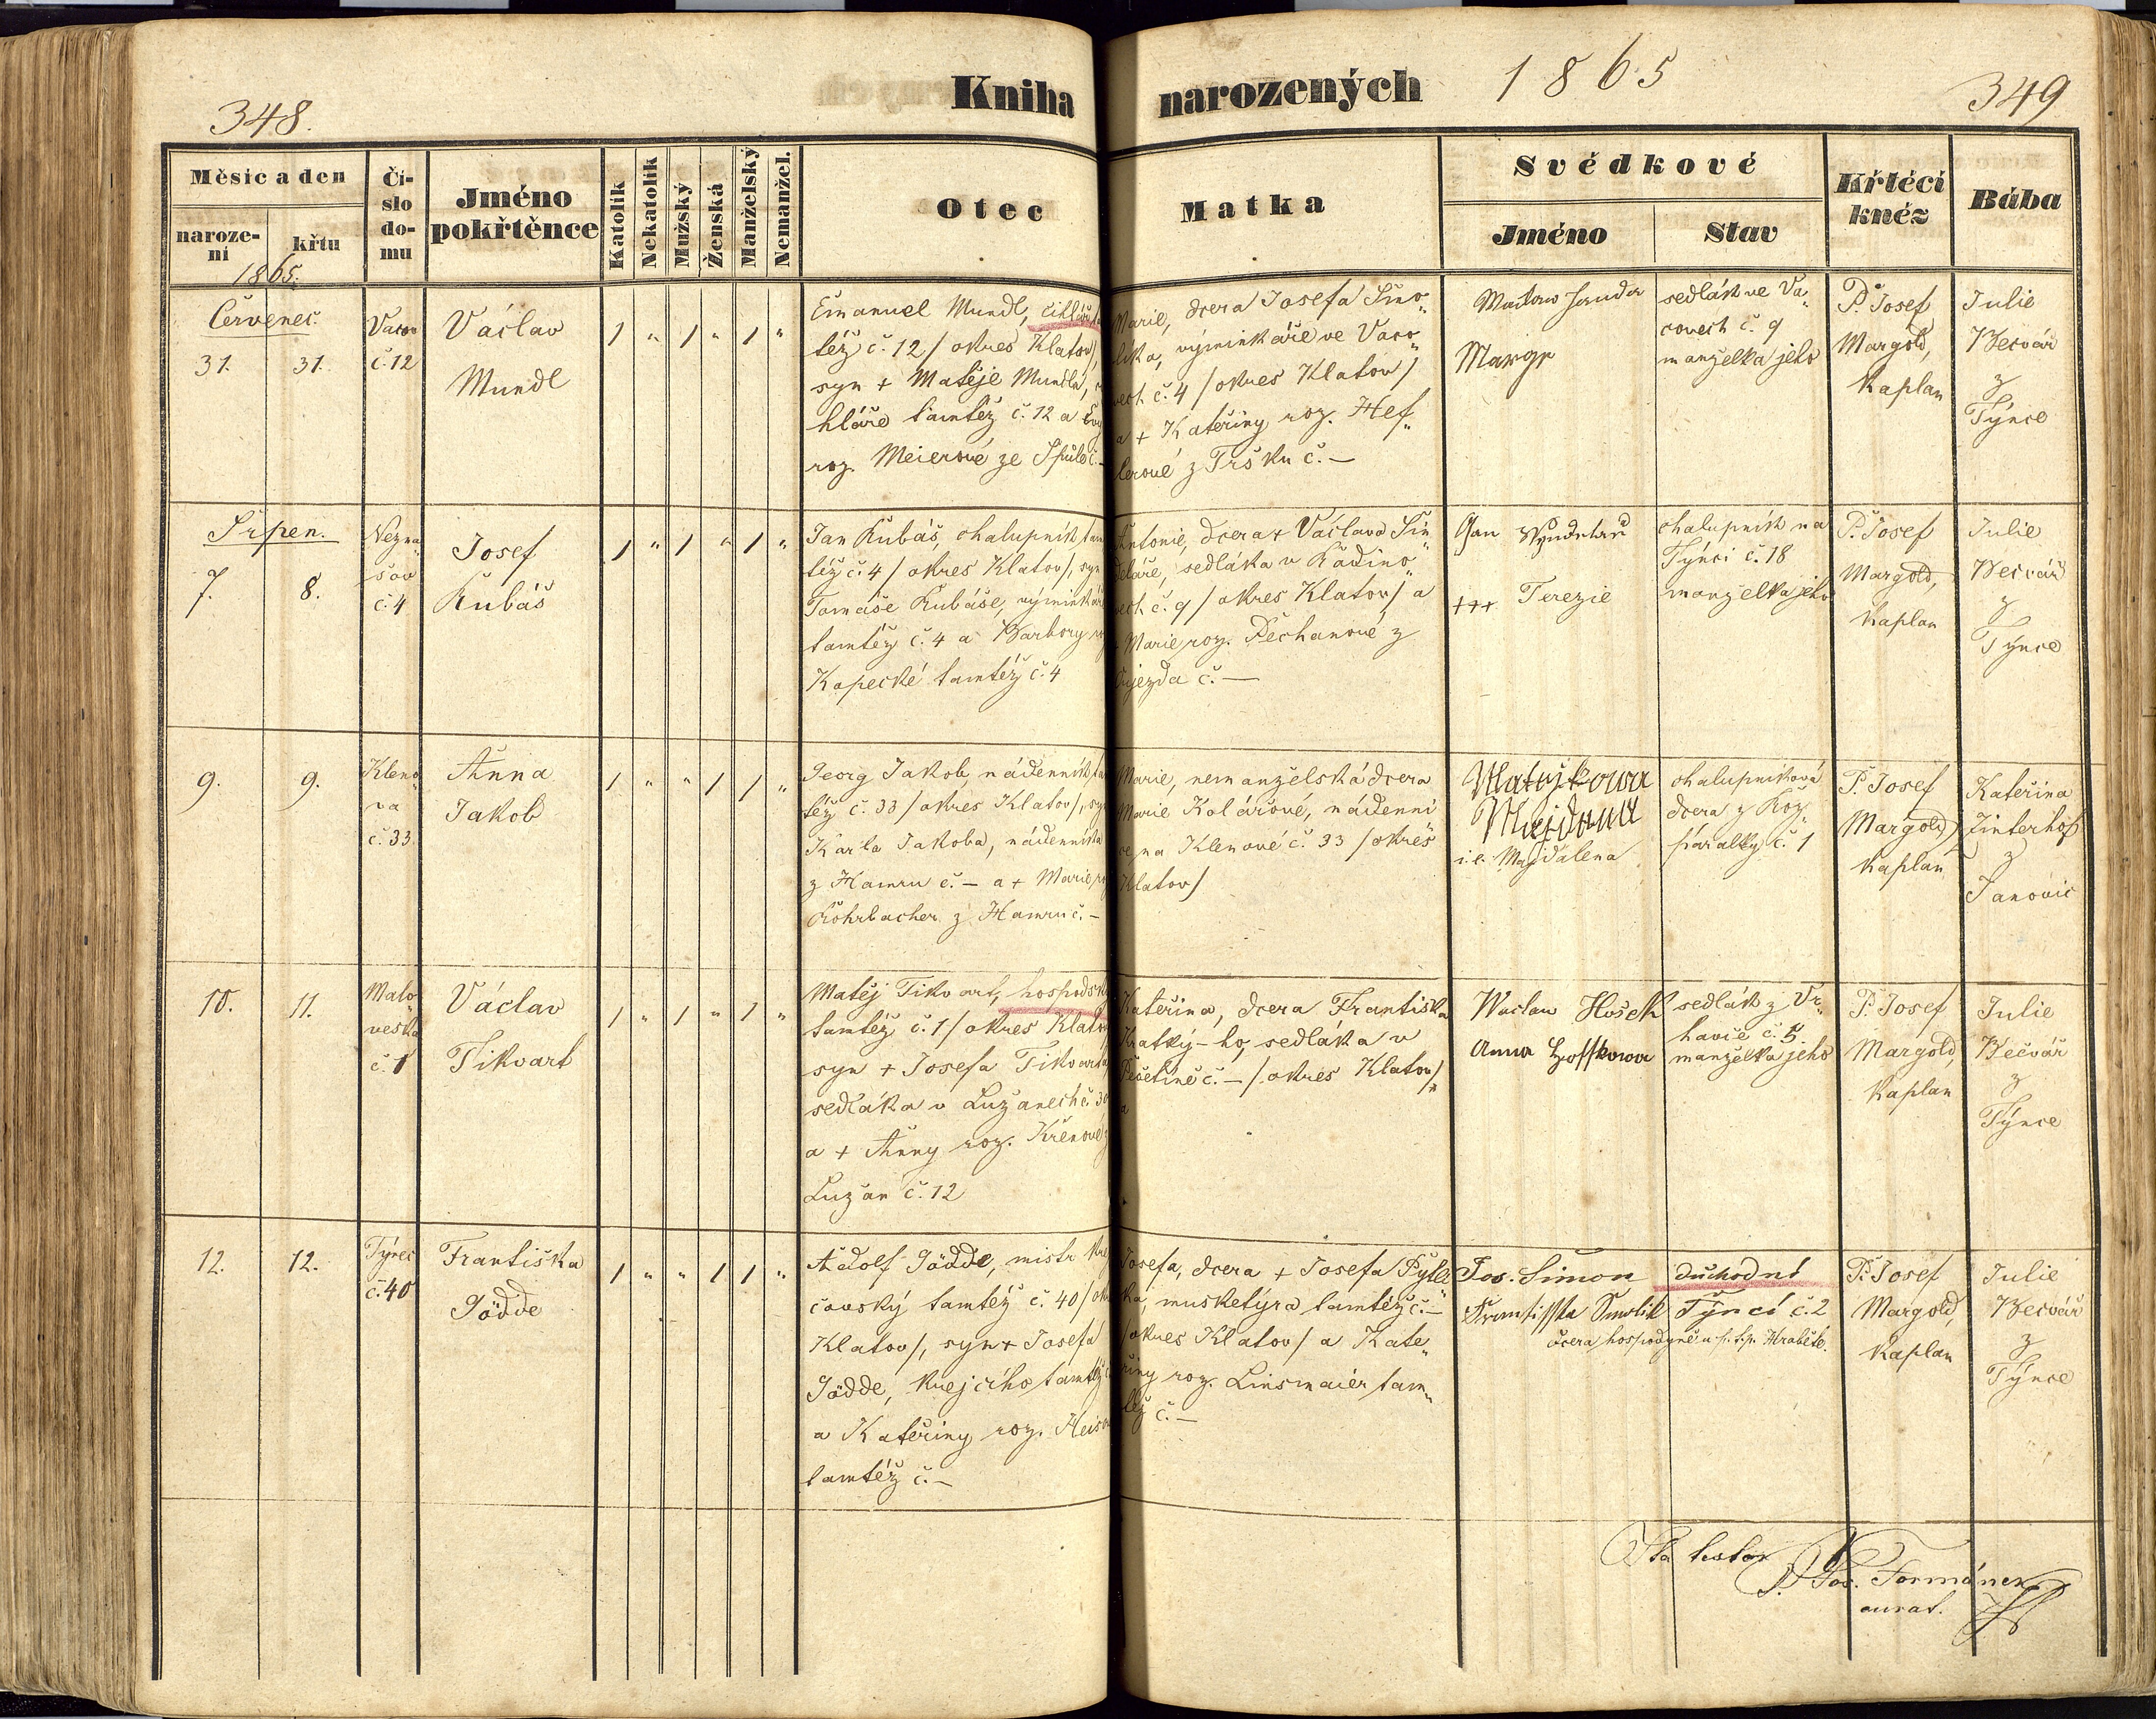 348.
Kniha narozených 1865
349
Měsíc a den
naroze-
ní
křtu
1865.
Čí-
slo
do-
mu
Jméno
pokřtěnce
Katolík
Nekatolík
Mužský
Ženská
Manželský
Nemanžel.
Otec
Matka
Svědkové
Jméno
Stav
Křtěcí
kněz
Bába
Červenec.
31. 31.
č. 12
Václav
Mundl
Emanuel Mundl,
též č. 12 / okres Klatov/,
syn + Matěje Mundla,
hláře tamtéž č. 12 a
roz. Meierové ze
Marie, dcera Josefa
výminkáře ve Vaco„
vech č. 4 / okres Klatov /
a + Kateřiny roz. Hef„
lerové z Tršku č. —
sedlák ve Va„
covech č. 9
manželka jeho
P. Josef
Margold,
Kaplan
Julie
Bečvář
z
Týnce
Srpen.
7. 8.
Nezna„
šov
č. 4
Josef
Kubáš
/ " / " / "
Jan Kubáš, chalupník tam
též č. 4 / okres Klatov/, syn
Tomáše Kubáše,
tamtéž č. 4 a Barbory
Kopecké tamtéž č. 4
Antonie, dcera + Václava Šin„
deláře, sedláka v
vech č. 9 / okres Klatov / a
+ Marie roz. Pechanové z
Oujezda č. —
Jan
+++ Terezie
chalupník na
Týnci č. 18
manželka jeho
P. Josef
Margold,
Kaplan
Julie
Bečvář
z
Týnce
9. 9.
Kleno„
va
č. 33
Anna
Jakob
/ " " / / "
Georg Jakob, nádenník
též č. 33 / okres Klatov/, syn
Karla Jakoba, nádenníka
z Hamru č. — a + Marie
Rohrbacher z Hamru č. —
Marie, nemanželská dcera
Marie Kolářové, nádenni
ce na Klenové č. 33 / okres
Klatov /
i.e. Magdalena
chalupníková
dcera z Roz„
páralky č. 1
P. Josef
Margold,
Kaplan
Kateřina
Zinterhof
z
Janovic
10. 11.
Malo„
veska
č. 1
Václav
Tikvart
/ " / " / "
Matěj Tikvart,
tamtéž č. 1 / okres Klatov
syn + Josefa Tikvarta
sedláka v Lužanech č. 30
a + Anny roz. Křenové z
Lužan č. 12
Kateřina, dcera Františka
Kratký-ho, sedláka v
Pečetíně č. — / okres Klatov /
a
Waclaw Hošek
Anna
sedlák z Vr„
havče č. 5.
manželka jeho
P. Josef
Margold,
Kaplan
Julie
Bečvář
z
Týnce
12. 12.
Týnec
č. 40
Františka
Gödde
/ " " / / "
Adolf Gödde, mistr krej
čovský tamtéž č. 40 /
Klatov /, syn + Josefa
Gödde, krejčího tamtéž
a Kateřiny roz.
tamtéž č. —
Josefa, dcera + Josefa
ka, musketýra tamtéž č. —
/ okres Klatov / a Kate„
řiny roz. Linsmaier tam„
též č. —
Jos. Simon
Smolik
důchodní
Týnci č. 2
dcera hospodyně u
P. Josef
Margold,
Kaplan
Julie
Bečvář
z
Týnce
Ita testor
P. Jos. Formánek
curat.